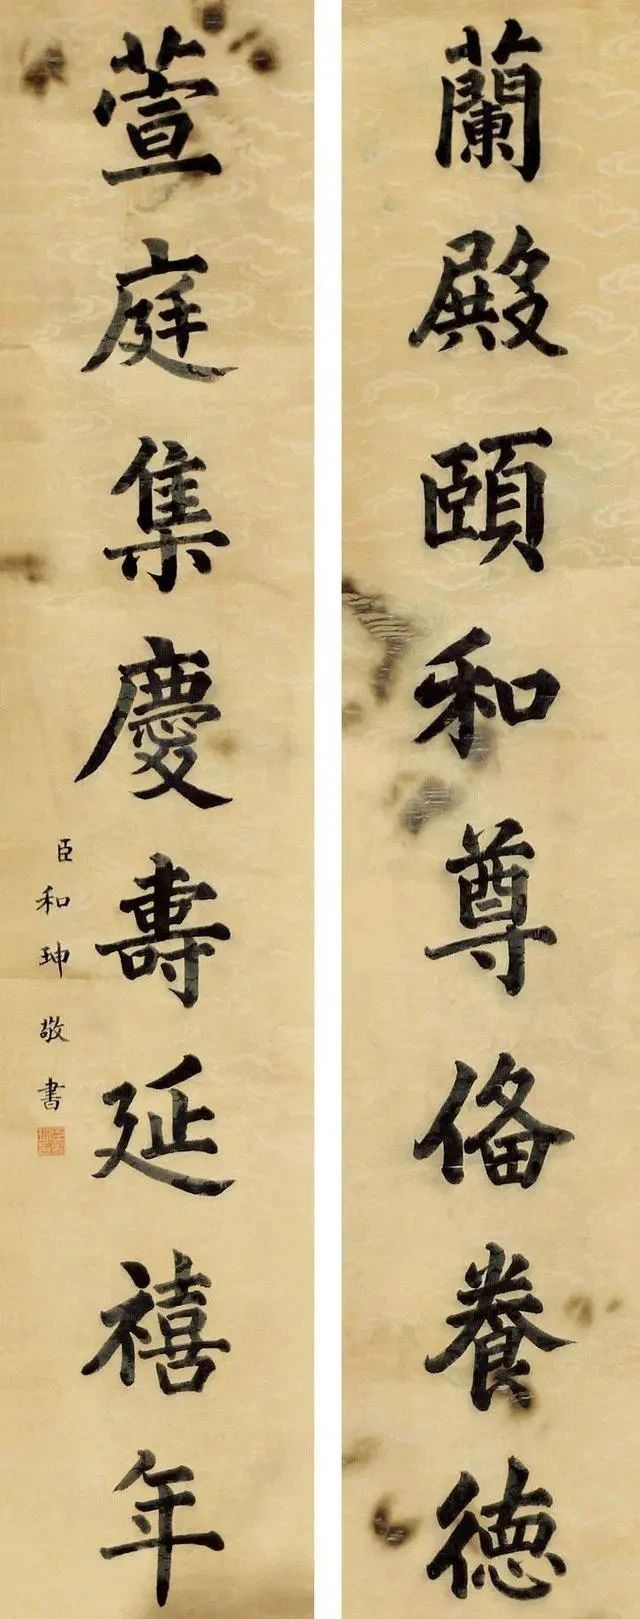 蘭殿頤和尊俻養德
萱庭集慶壽延禧年
臣和珅敬書